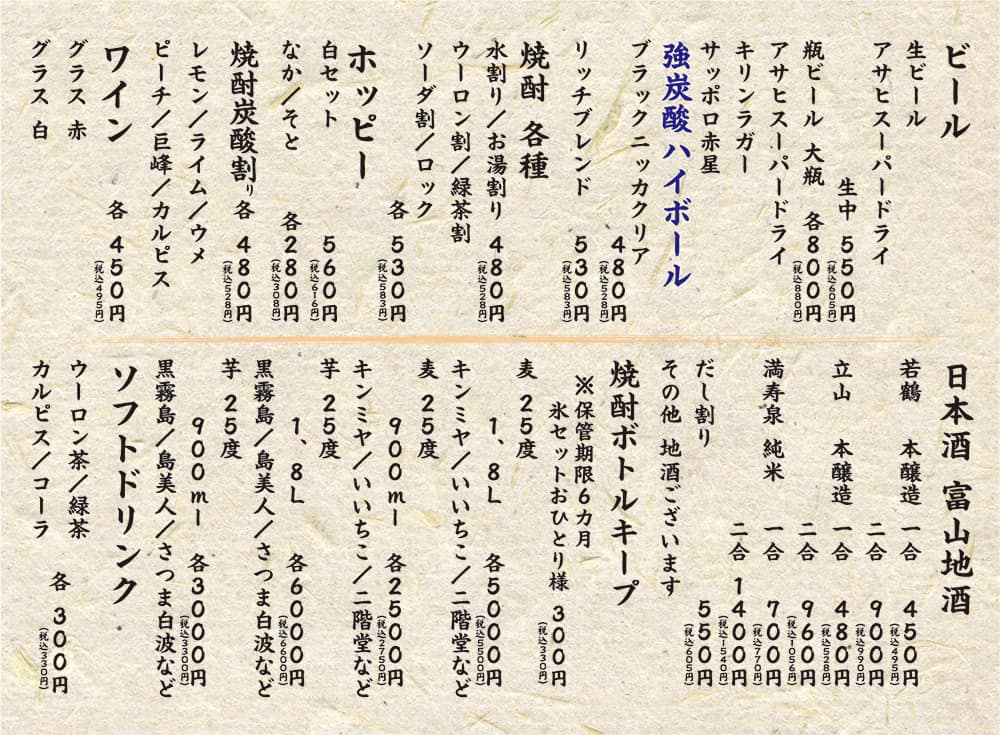 ビール
生ビール
アサヒスーパードライ
生中 550円
(税込605円)
瓶ビール 大瓶 各800円
(税込880円)
アサヒスーパードライ
キリンラガー
サッポロ赤星
強炭酸ハイボール
ブラックニッカクリア
480円
(税込528円)
リッチブレンド 530円
(税込583円)
焼酎 各種
水割り/お湯割り 480円
(税込528円)
ウーロン割/緑茶割
ソーダ割/ロック
各 530円
(税込583円)
ホッピー
白セット 560円
(税込616円)
なか/そと 各280円
(税込308円)
焼酎炭酸割り 各 480円
(税込528円)
レモン/ライム/ウメ
ピーチ/巨峰/カルピス
ワイン 各 450円
(税込495円)
グラス 赤
グラス 白
日本酒 富山地酒
若鶴 本醸造 一合 450円
(税込495円)
二合 900円
(税込990円)
立山 本醸造 一合 480円
(税込528円)
二合 960円
(税込1056円)
満寿泉 純米 一合 700円
(税込770円)
二合 1400円
(税込1540円)
だし割り 550円
(税込605円)
その他 地酒ございます
焼酎ボトルキープ
※保管期限6カ月
氷セットおひとり様 300円
(税込330円)
麦 25度
1、8L 各5000円
(税込5500円)
キンミヤ/いいちこ/二階堂など
麦 25度
900ml 各2500円
(税込2750円)
キンミヤ/いいちこ/二階堂など
芋 25度
1、8L 各6000円
(税込6600円)
黒霧島/島美人/さつま白波など
芋 25度
900ml 各3000円
(税込3300円)
黒霧島/島美人/さつま白波など
ソフトドリンク
ウーロン茶/緑茶
カルピス/コーラ
各 300円
(税込330円)